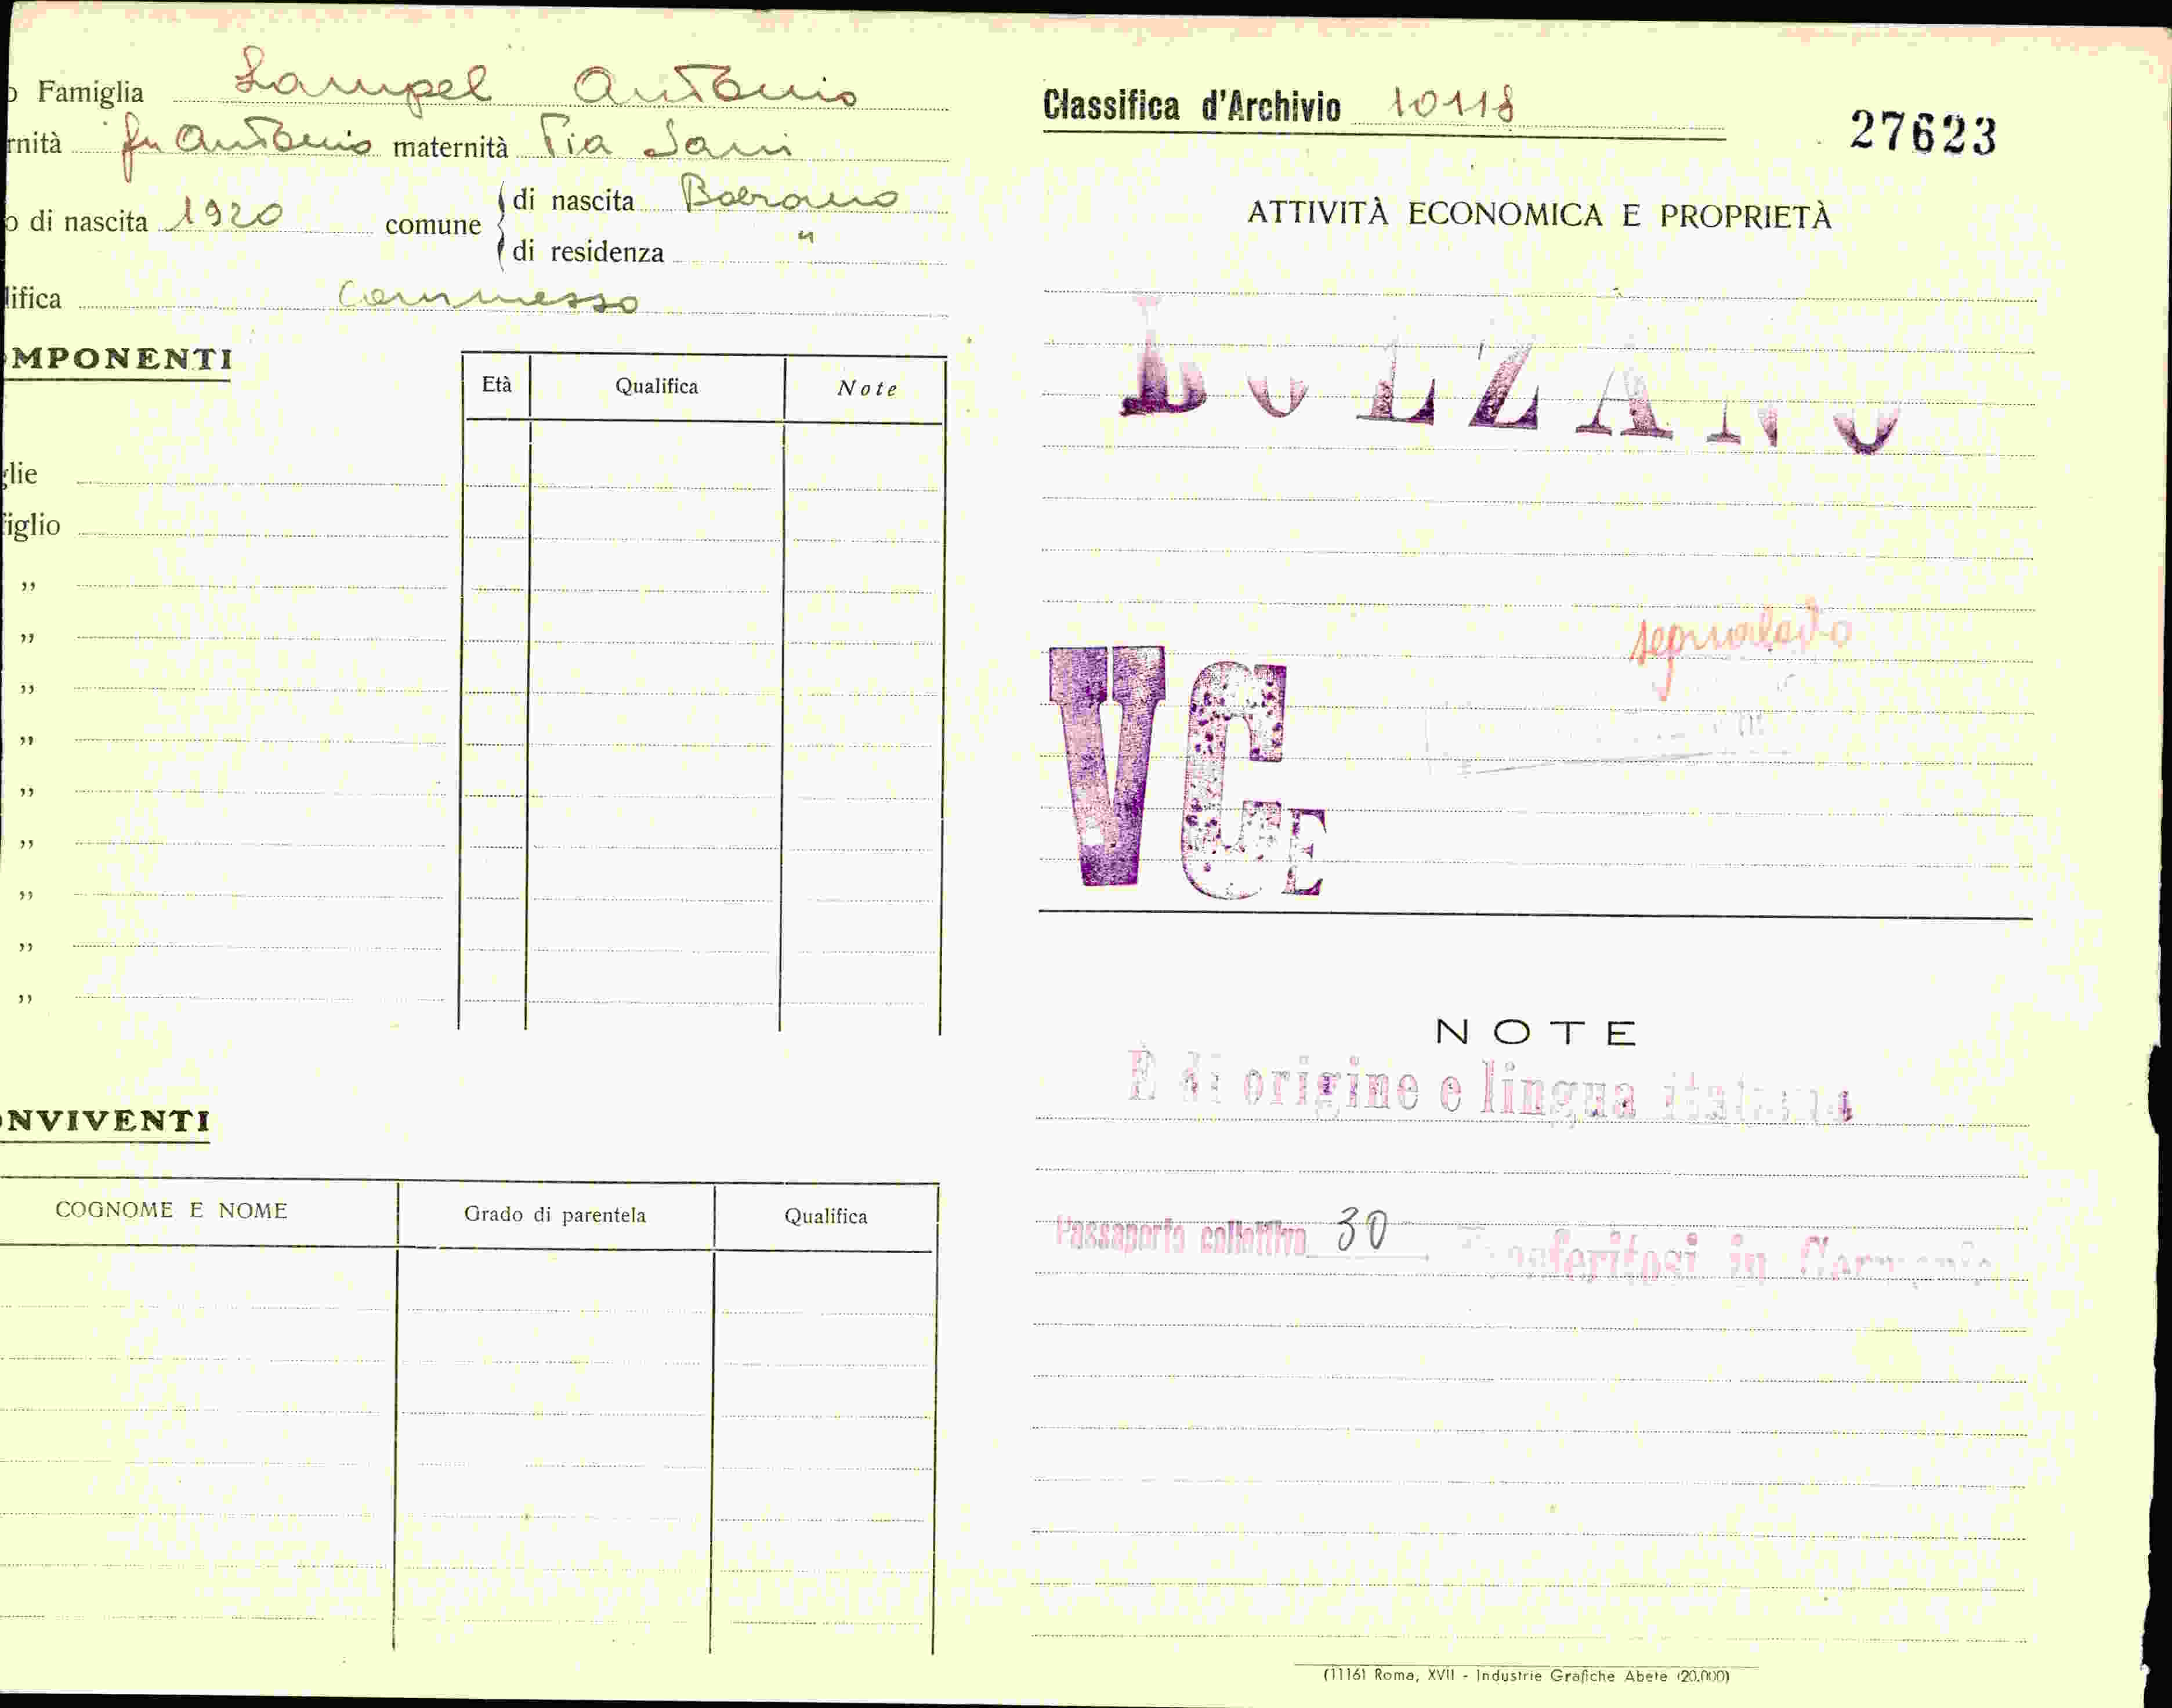 o Famiglia Lampel Antonio
rnità fu Antonio maternità Pia Sani
o di nascita 1920 comune di nascita Bolzano
di residenza "
lifica Commesso
OMPONENTI
Età Qualifica Note
glie
figlio
"
"
"
"
"
"
"
"
"
ONVIVENTI
COGNOME E NOME Grado di parentela Qualifica
Classifica d'Archivio 10118
27623
ATTIVITÀ ECONOMICA E PROPRIETÀ
BOLZANO
segnalato
VCE
NOTE
È di origine e lingua italiana
Passaporto collettivo 30 Trasferitosi in Germania
(1116) Roma, XVII - Industrie Grafiche Abete (20.000)